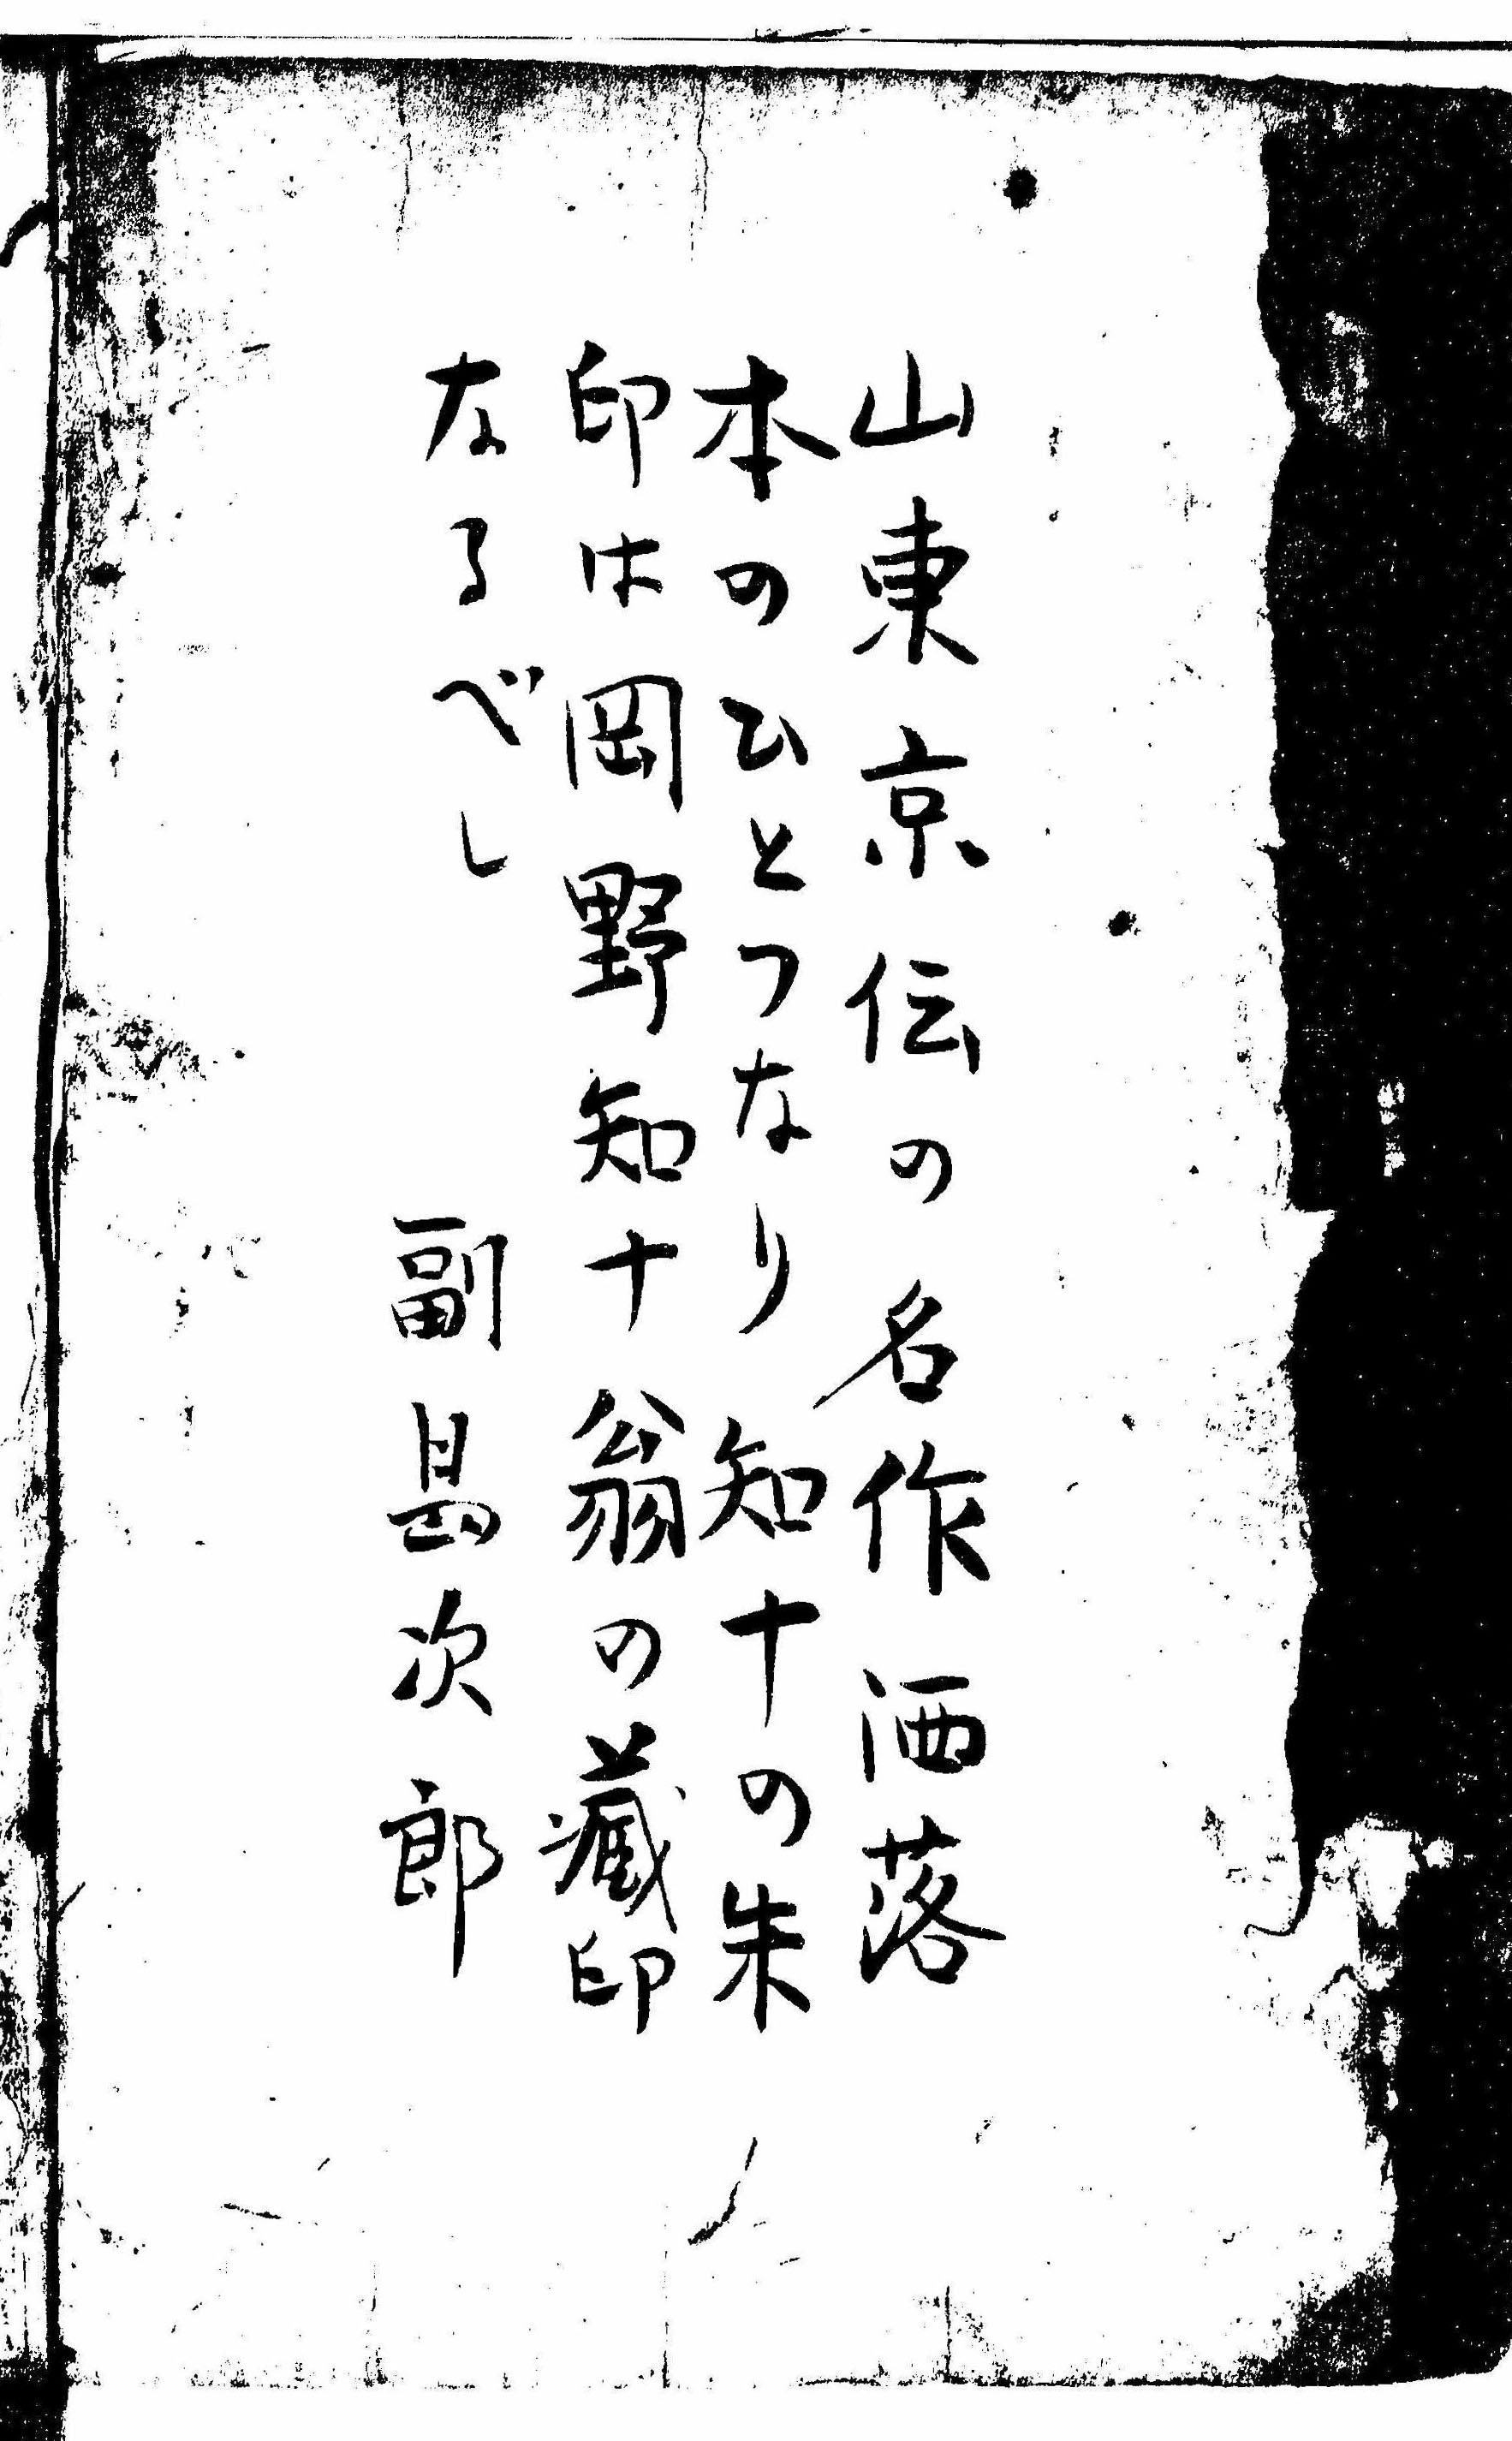 山東京伝の名作洒落
本のひとつなり知十の朱
印は岡野知十翁の蔵印
なるべし
副島次郎